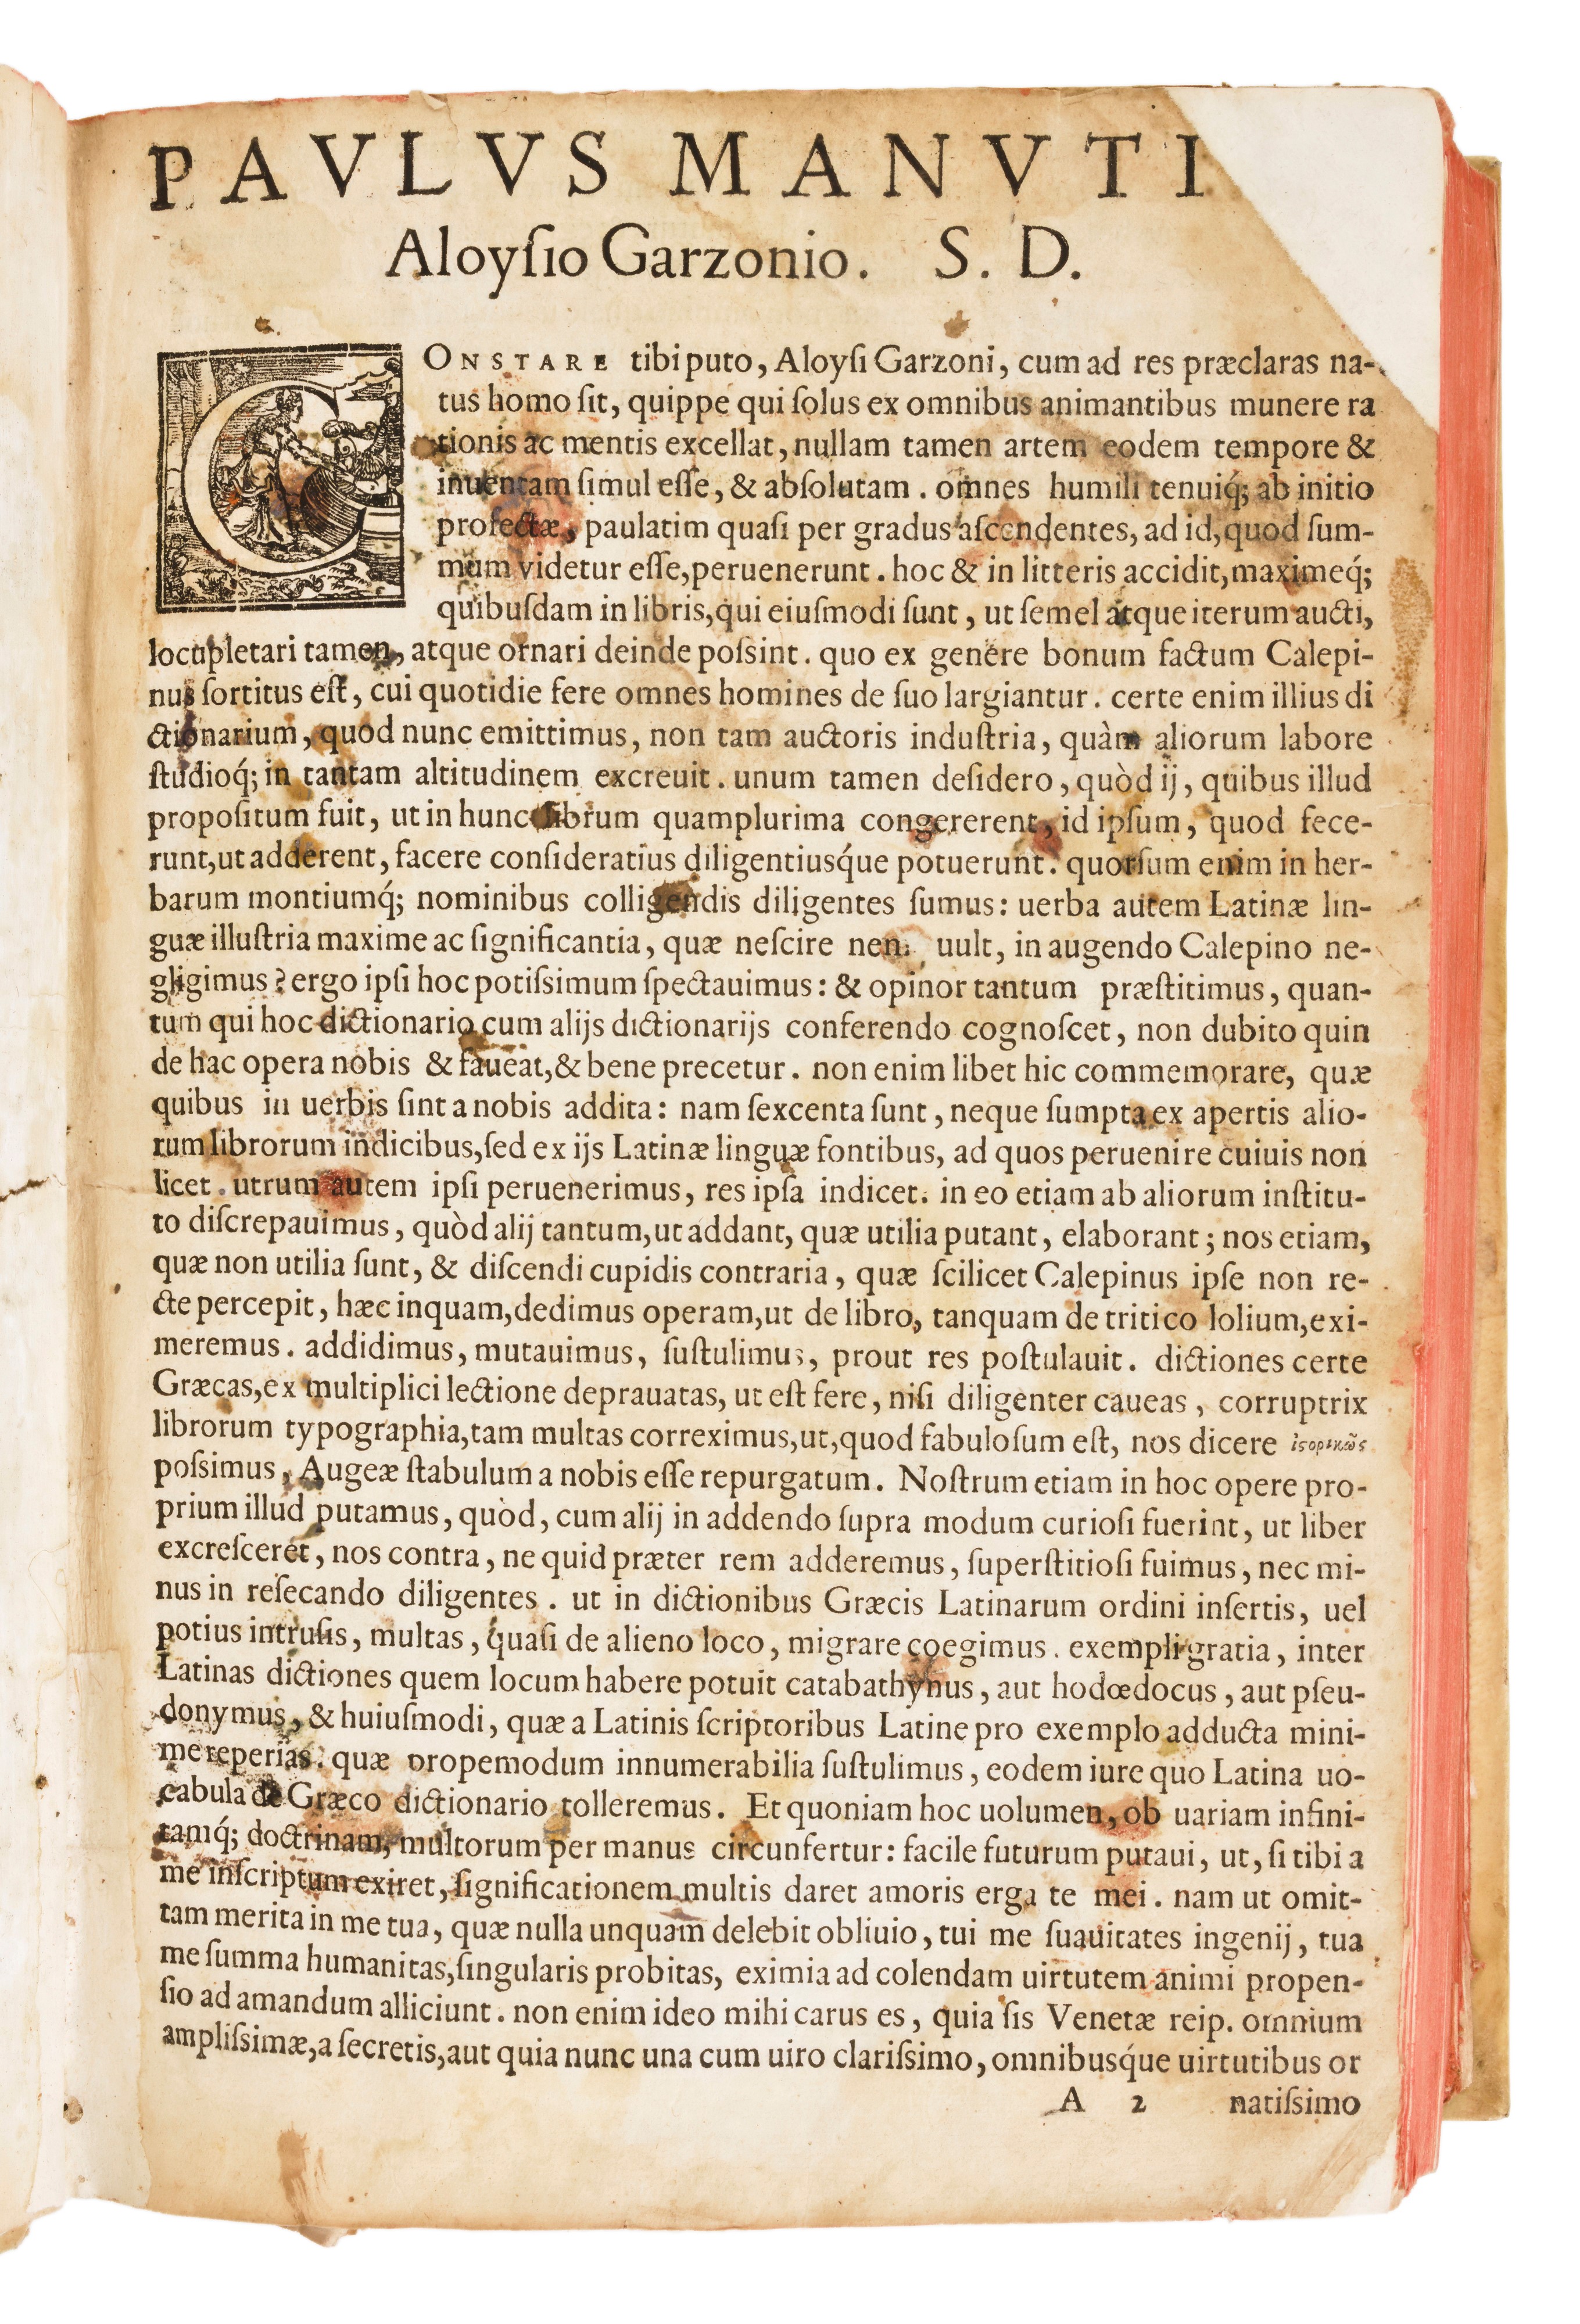 PAVLVS MANVTI
Aloyſio Garzonio. S. D.
CONSTARE tibi puto, Aloyſi Garzoni, cum ad res præclaras na-
tus homo ſit, quippe qui ſolus ex omnibus animantibus munere ra
tionis ac mentis excellat, nullam tamen artem eodem tempore &
inuentam ſimul eſſe, & abſolutam. omnes humili tenuiq́; ab initio
profectæ, paulatim quaſi per gradus aſcendentes, ad id, quod ſum-
mum videtur eſſe, peruenerunt. hoc & in litteris accidit, maximeq́;
quibuſdam in libris, qui eiuſmodi ſunt, ut ſemel atque iterum aucti,
locupletari tamen, atque ornari deinde poſsint. quo ex genere bonum factum Calepi-
nus ſortitus eſt, cui quotidie fere omnes homines de ſuo largiantur. certe enim illius di
ctionarium, quod nunc emittimus, non tam auctoris induſtria, quàm aliorum labore
ſtudioq́; in tantam altitudinem excreuit. unum tamen deſidero, quòd ij, quibus illud
propoſitum fuit, ut in hunc librum quamplurima congererent, id ipſum, quod fece-
runt, ut adderent, facere conſideratius diligentiusq́ue potuerunt. quorſum enim in her-
barum montiumq́; nominibus colligendis diligentes ſumus: uerba autem Latinæ lin-
guæ illuſtria maxime ac ſignificantia, quæ neſcire uult, in augendo Calepino ne-
gligimus? ergo ipſi hoc potiſsimum ſpectauimus: & opinor tantum præſtitimus, quan-
tum qui hoc dictionario cum alijs dictionarijs conferendo cognoſcet, non dubito quin
de hac opera nobis & faueat, & bene precetur. non enim libet hic commemorare, quæ
quibus in uerbis ſint a nobis addita: nam ſexcenta ſunt, neque ſumpta ex apertis alio-
rum librorum indicibus, ſed ex ijs Latinæ linguæ fontibus, ad quos peruenire cuiuis non
licet. utrum autem ipſi peruenerimus, res ipſa indicet. in eo etiam ab aliorum inſtitu-
to diſcrepauimus, quòd alij tantum, ut addant, quæ utilia putant, elaborant; nos etiam,
quæ non utilia ſunt, & diſcendi cupidis contraria, quæ ſcilicet Calepinus ipſe non re-
cte percepit, hæc inquam, dedimus operam, ut de libro, tanquam de tritico lolium, exi-
meremus. addidimus, mutauimus, ſuſtulimus, prout res poſtulauit. dictiones certe
Græcas, ex multiplici lectione deprauatas, ut eſt fere, niſi diligenter caueas, corruptrix
librorum typographia, tam multas correximus, ut, quod fabuloſum eſt, nos dicere ἱϛορικῶς
poſsimus, Augeæ ſtabulum a nobis eſſe repurgatum. Noſtrum etiam in hoc opere pro-
prium illud putamus, quòd, cum alij in addendo ſupra modum curioſi fuerint, ut liber
excreſcerét, nos contra, ne quid præter rem adderemus, ſuperſtitioſi fuimus, nec mi-
nus in reſecando diligentes. ut in dictionibus Græcis Latinarum ordini inſertis, uel
potius intruſis, multas, quaſi de alieno loco, migrare coegimus. exempli gratia, inter
Latinas dictiones quem locum habere potuit catabathynus, aut hodœdocus, aut pſeu-
donymus, & huiuſmodi, quæ a Latinis ſcriptoribus Latine pro exemplo adducta mini-
me reperias. quæ propemodum innumerabilia ſuſtulimus, eodem iure quo Latina uo-
cabula de Græco dictionario tolleremus. Et quoniam hoc uolumen, ob uariam infini-
tamq́; doctrinam, multorum per manus circunfertur: facile futurum putaui, ut, ſi tibi a
me inſcriptum exiret, ſignificationem multis daret amoris erga te mei. nam ut omit-
tam merita in me tua, quæ nulla unquam delebit obliuio, tui me ſuauitates ingenij, tua
me ſumma humanitas, ſingularis probitas, eximia ad colendam uirtutem animi propen-
ſio ad amandum alliciunt. non enim ideo mihi carus es, quia ſis Venetæ reip. omnium
ampliſsimæ, a ſecretis, aut quia nunc una cum uiro clariſsimo, omnibusq́ue uirtutibus or
A 2 natiſsimo